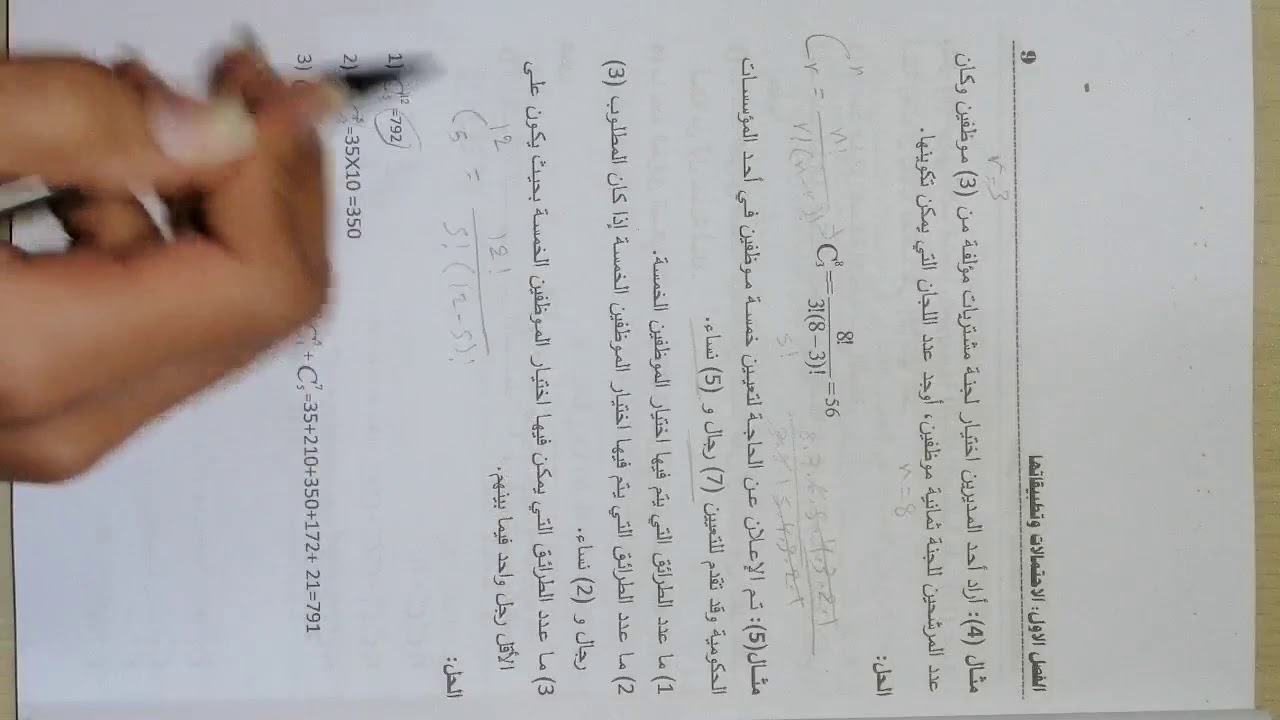 9 الفصل الاول: الاحتمالات وتطبيقاتها
r=3
مثال (4): أراد أحد المديرين اختيار لجنة مشتريات مؤلفة من (3) موظفين وكان
عدد المرشحين للجنة ثمانية موظفين، أوجد عدد اللجان التي يمكن تكوينها.
n=8
الحل:
C_r^n = n!/r!(n-r)! ⇒ C_3^8 = 8!/3!(8-3)! = 56
5!
8.7.6.5.4.3.2.1
مثال(5): تم الإعلان عن الحاجة لتعيين خمسة موظفين في أحد المؤسسات
الحكومية وقد تقدم للتعيين (7) رجال و (5) نساء.
1) ما عدد الطرائق التي يتم فيها اختيار الموظفين الخمسة.
2) ما عدد الطرائق التي يتم فيها اختيار الموظفين الخمسة إذا كان المطلوب (3)
رجال و (2) نساء.
3) ما عدد الطرائق التي يمكن فيها اختيار الموظفين الخمسة بحيث يكون على
الأقل رجل واحد فيما بينهم.
الحل:
C_5^12 = 12!/5!(12-5)!
1) C_5^12 =792
2) =35X10 =350
3) + C_5^7 =35+210+350+172+ 21=791